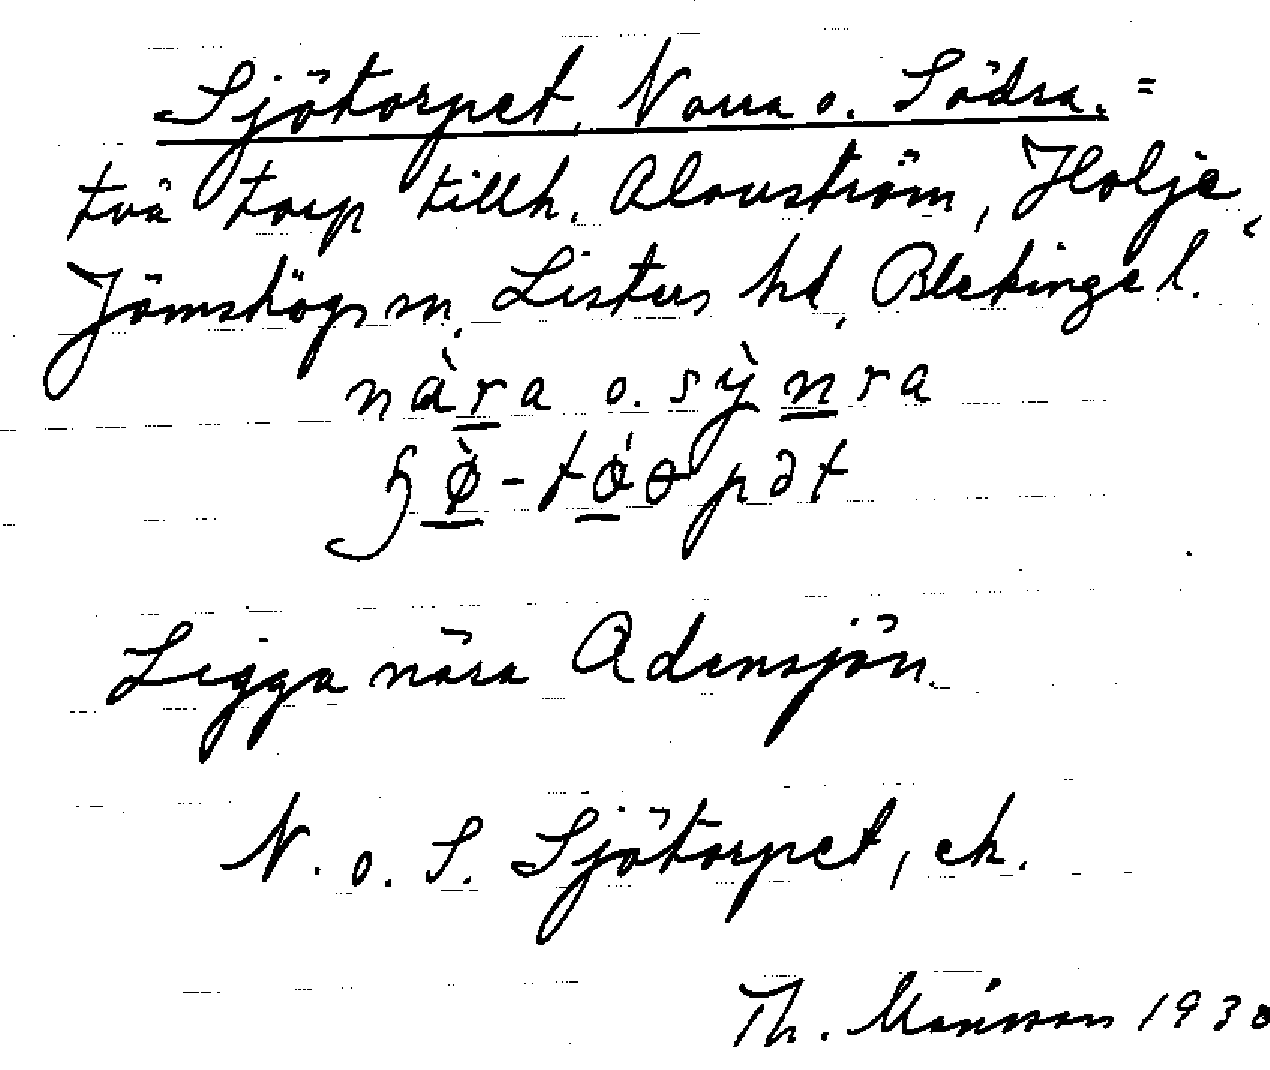 Sjötorpet, Norra o. Södra. =
två torp tillh. Alouström, Holje,
Jämshögs sn, Listers hd, Blekinge l.
nàra o. sỳnra
-tɵ́ɵpət
Ligga nära Adensjön.
N. o. S. Sjötorpet, ek.
Th. Månsson 1930